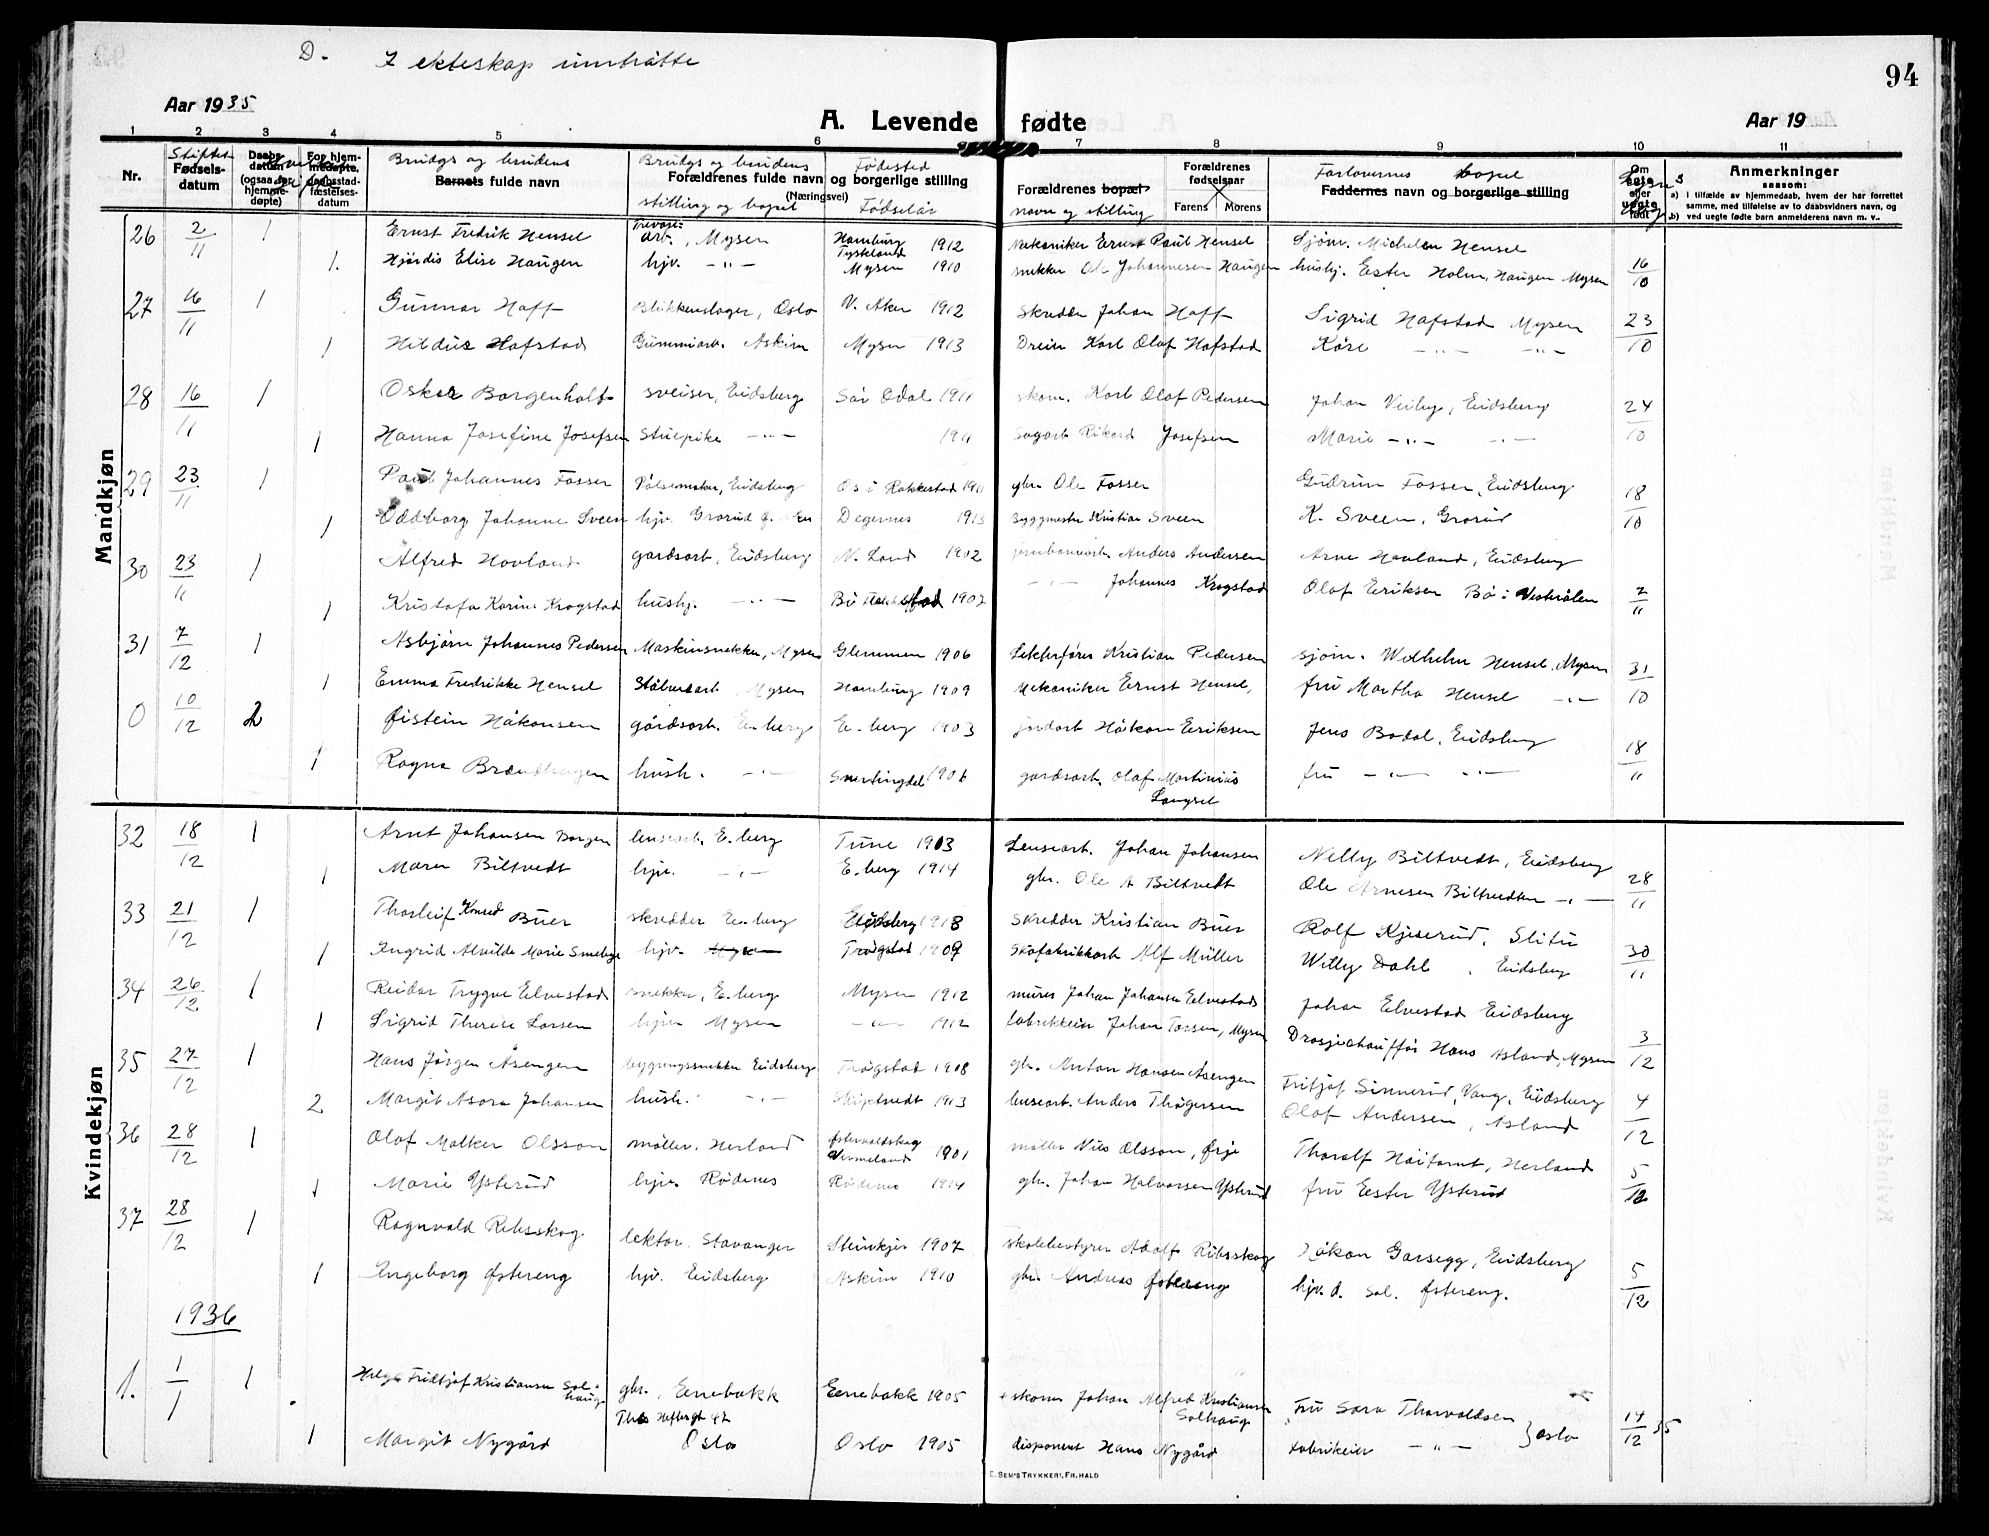 D. I ekteskap inntrådte
94
Aar 1935
A. Levende fødte
Aar 19
1 2 3 4 5 6 7 8 9 10 11
Nr.
Stiftet
Fødsels-
datum
Daabs-
datum
(ogsaa for
hjemme-
døpte)
For hjem-
medøpte,
daabsstad-
fæstelses-
datum
Brudgs og brudens
Barnets fulde navn
Brudgs og brudens Fødested
Forældrenes fulde navn og borgerlige stilling
(Næringsvei)
stilling og bopel Fødselår
Forældrenes bopæl
navn og stilling
Forældrenes
fødselsaar
Farens Morens
Forlovernes bopel
Faddernes navn og borgerlige stilling
Om
egte
eller
uegte
født
Anmerkninger
saasom:
a) i tilfælde av hjemmedaab, hvem der har forrettet
samme, med tilføielse av to daabsvidners navn, og
b) ved uegte fødte barn anmelderens navn m. v..
Mandkjøn
26 2/11 1 Ernst Fredrik Hensel arb., Mysen Hamburg Tyskeland 1912 mekaniker Ernst Paul Hensel Sjøm. Hensel
1. Hjørdis Elise Haugen hjv. -"- Mysen 1910 snekker Ole Johannesen Haugen hushj. Ester Holm, Haugen Mysen 16/10
27 16/11 1 Gunnar Haff Blikkenslager, Oslo V. Aker 1912 Skredder Johan Haff Sigrid Hafstad Mysen 23/10
1 Hafstad Gummiarb. Askim Mysen 1913 Karl Olaf Hafstad Kåre -"- -"-
28 16/11 1 Oskar Borgenholt sveiser, Eidsberg Sør Odal 1911 skom. Karl Olaf Pedersen Johan Veiby, Eidsberg 24/10
1 Hanna Josefine Josefsen Stuepike -"- 1911 Sagarb. Rikard Josefsen Marie -"- -"-
29 23/11 1 Paul Johannes Fosser Pølsemaker, Eidsberg Os i Rakkestad 1911 gbr. Ole Fosser Gudrun Fosser, Eidsberg 18/10
1 Oddborg Johanne Sveen hjv. Grorud Degernes 1913 Byggmester Kristian Sveen K. Sveen, Grorud
30 23/11 1 Alfred Hovland gårdsarb., Eidsberg N. Land 1902 jernbanearb. Anders Andersen Arne Hovland, Eidsberg
1 Kristofa Karine Krogstad hushj. -"- Bø 1907 -"- Johannes Krogstad Olaf Eriksen Bø i Vesterålen 2/11
31 7/12 1 Asbjørn Johannes Pedersen Maskinsnekker, Mysen Glemmen 1906 Lekterfører Kristian Pedersen sjøm. Wilhelm Hensel, Mysen 31/10
1 Emma Fredrikke Hensel Mysen Hamburg 1909 Mekaniker Ernst Hensel, fru Martha Hensel -"-
0 10/12 2 Øistein Håkonsen gårdsarb. E.-berg E.-berg 1903 jordarb. Håkon Eriksen Jens Bodal, Eidsberg 18/11
1 Ragna Brændhagen hush. -"- Snertingdal 1906 gårdsarb. Olaf Martinius Langsel fru -"- -"-
Kvindekjøn
32 18/12 1 Arnt Johansen Borgen lensearb. E.berg Tune 1903 Lensearb. Johan Johansen Nelly Biltvedt, Eidsberg
1 Maren Biltvedt hjv. -"- E.berg 1914 gbr. Ole A Biltvedt Ole Arnesen Biltvedt -"- 28/11
33 21/12 1 Thorleif Konrad Buer skredder E.-berg Eidsberg 1918 Skredder Kristian Buer Rolf Kjiserud, Slitu
1 Ingrid Alvilde Marie hjv. Trøgstad 1909 Skofabrikkarb. Alf Müller Willy Dahl, Eidsberg 30/11
34 26/12 1 Reidar Trygve Elvestad snekker, E.berg Mysen 1912 murer Johan Johansen Elvestad Johan Elvestad Eidsberg
1 Sigrid Therese Larsen hjv. Mysen -"- 1912 fabrikkeier Johan Larsen, Mysen Drosjechauffør Hans Åsland, Mysen 3/12
35 27/12 1 Hans Jørgen Åsengen bygningssnekker Eidsberg Trøgstad 1908 gbr. Anton Hansen Åsengen Fritjof Sinnerud, Vang, Eidsberg
2 Margit Asora Johansen hush. -"- Skiptvedt 1913 lensearb. Anders Thøgersen Olaf Andersen, Åsland 4/12
36 28/12 1 Olof Malker Olsson møller. Herland Vermeland 1901 møller Nils Olsson, Ørje Thoralf Høitomt, Herland
1 Marie Ysterud hjv. Rødenes Rødenes 1914 gbr. Johan Halvorsen Ysterud fru Ester Ysterud 5/12
37 28/12 1 Ragnvald Ribsskog lektor. Stavanger Steinkjer 1907 skolebestyrer Adolf Ribsskog Håkon Garsegg, Eidsberg
1 Ingeborg Østereng hjv. Eidsberg Askim 1910 gbr. Andreas Østereng hjv. d. Sol. Østereng. 5/12
1936
1. 1/1 1 Helge Fridtjof Kristiansen Solhaug gbr., Enebakk Enebakk 1905 skom Johan Alfred Kristiansen Solhaug Fru Sara Thorvaldsen } Oslo 14/12 35
1 Margit Nygård Ths Heftesgt 42 Oslo Oslo 1905 disponent Hans Nygård Fabrikeier -"-
E. SEM'S TRYKKERI, FR.HALD